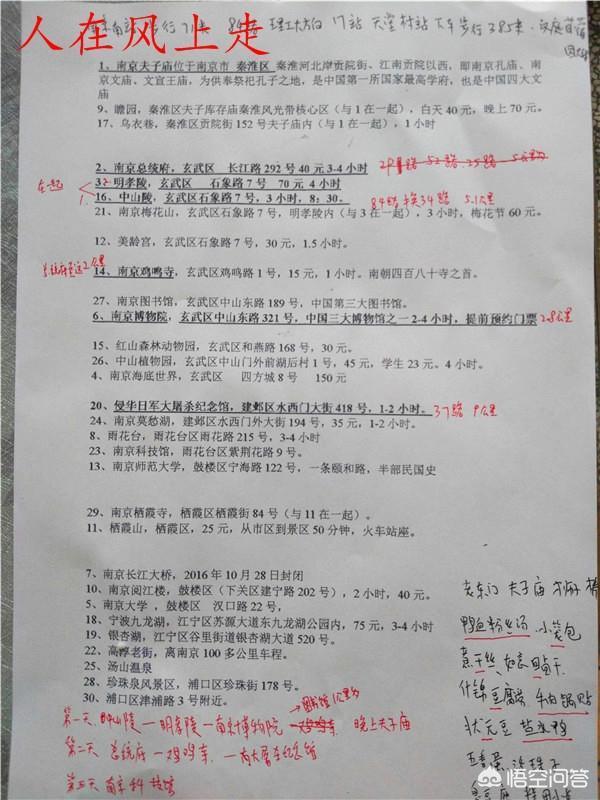 人在风上走
南站 步行 71米 84路 理工大方向 门站 天堂村站 下车 步行 385米
1、南京夫子庙位于南京市 秦淮区 秦淮河北岸贡院街、江南贡院以西，即南京孔庙、南
京文庙、文宣王庙，为供奉祭祀孔子之地，是中国第一所国家最高学府，也是中国四大文
庙
9、瞻园，秦淮区夫子庙秦淮风光带核心区（与 1 在一起），白天 40 元，晚上 70 元。
17、乌衣巷，秦淮区贡院街 152 号夫子庙内（与 1 在一起），1 小时
2、南京总统府，玄武区 长江路 292 号 40 元 3-4 小时
在一起
3、明孝陵，玄武区 石象路 7 号 70 元 4 小时
16、中山陵，玄武区石象路 7 号，3 小时，8：30。
84路 转 34路 5.1公里
21、南京梅花山，玄武区石象路 7 号，明孝陵内（与 3 在一起），3 小时，梅花节 60 元。
12、美龄宫，玄武区石象路 7 号，30 元，1.5 小时。
14、南京鸡鸣寺，玄武区鸡鸣路 1 号，15 元，1 小时。南朝四百八十寺之首。
27、南京图书馆，玄武区中山东路 189 号，中国第三大图书馆。
6、南京博物院，玄武区中山东路 321 号，中国三大博物馆之一 2-4 小时，提前预约门票 2.8公里
15、红山森林动物园，玄武区和燕路 168 号，30 元。
26、中山植物园，玄武区中山门外前湖后村 1 号，45 元，学生 23 元。4 小时。
4、南京海底世界，玄武区 四方城 8 号 150 元
20、侵华日军大屠杀纪念馆，建邺区水西门大街 418 号，1-2 小时。 37路 9公里
24、南京莫愁湖，建邺区水西门外大街 194 号，35 元，1-2 小时。
8、雨花台，雨花台区雨花路 215 号，3-4 小时
23、南京科技馆，雨花台区紫荆花路 9 号。
13、南京师范大学，鼓楼区宁海路 122 号，一条颐和路，半部民国史
29、南京栖霞寺，栖霞区栖霞街 84 号（与 11 在一起）。
11、栖霞山，栖霞区，25 元，从市区到景区 50 分钟，火车站座。
7、南京长江大桥，2016 年 10 月 28 日封闭
10、南京阅江楼，鼓楼区（下关区建宁路 202 号），2 小时，40 元。
5、南京大学 ，鼓楼区 汉口路 22 号，
18、宁波九龙湖，江宁区苏源大道东九龙湖公园内，75 元，3-4 小时
19、银杏湖，江宁区谷里街道银杏湖大道 520 号。
22、高淳老街，离南京 100 多公里车程。
25、汤山温泉
28、珍珠泉风景区，浦口区珍珠街 178 号。
30、浦口区津浦路 3 号附近。
第一天 中山陵 — 明孝陵 — 南京博物院 — 鸡鸣寺 晚上夫子庙
第二天 总统府 — 鸡鸣寺 — 大屠杀纪念馆
第三天 南京科技馆
老东门 夫子庙
鸭血粉丝汤 小笼包
煮干丝 如意回卤干
什锦豆腐涝 牛肉锅贴
状元豆 盐水鸭
五香蛋
悟空问答